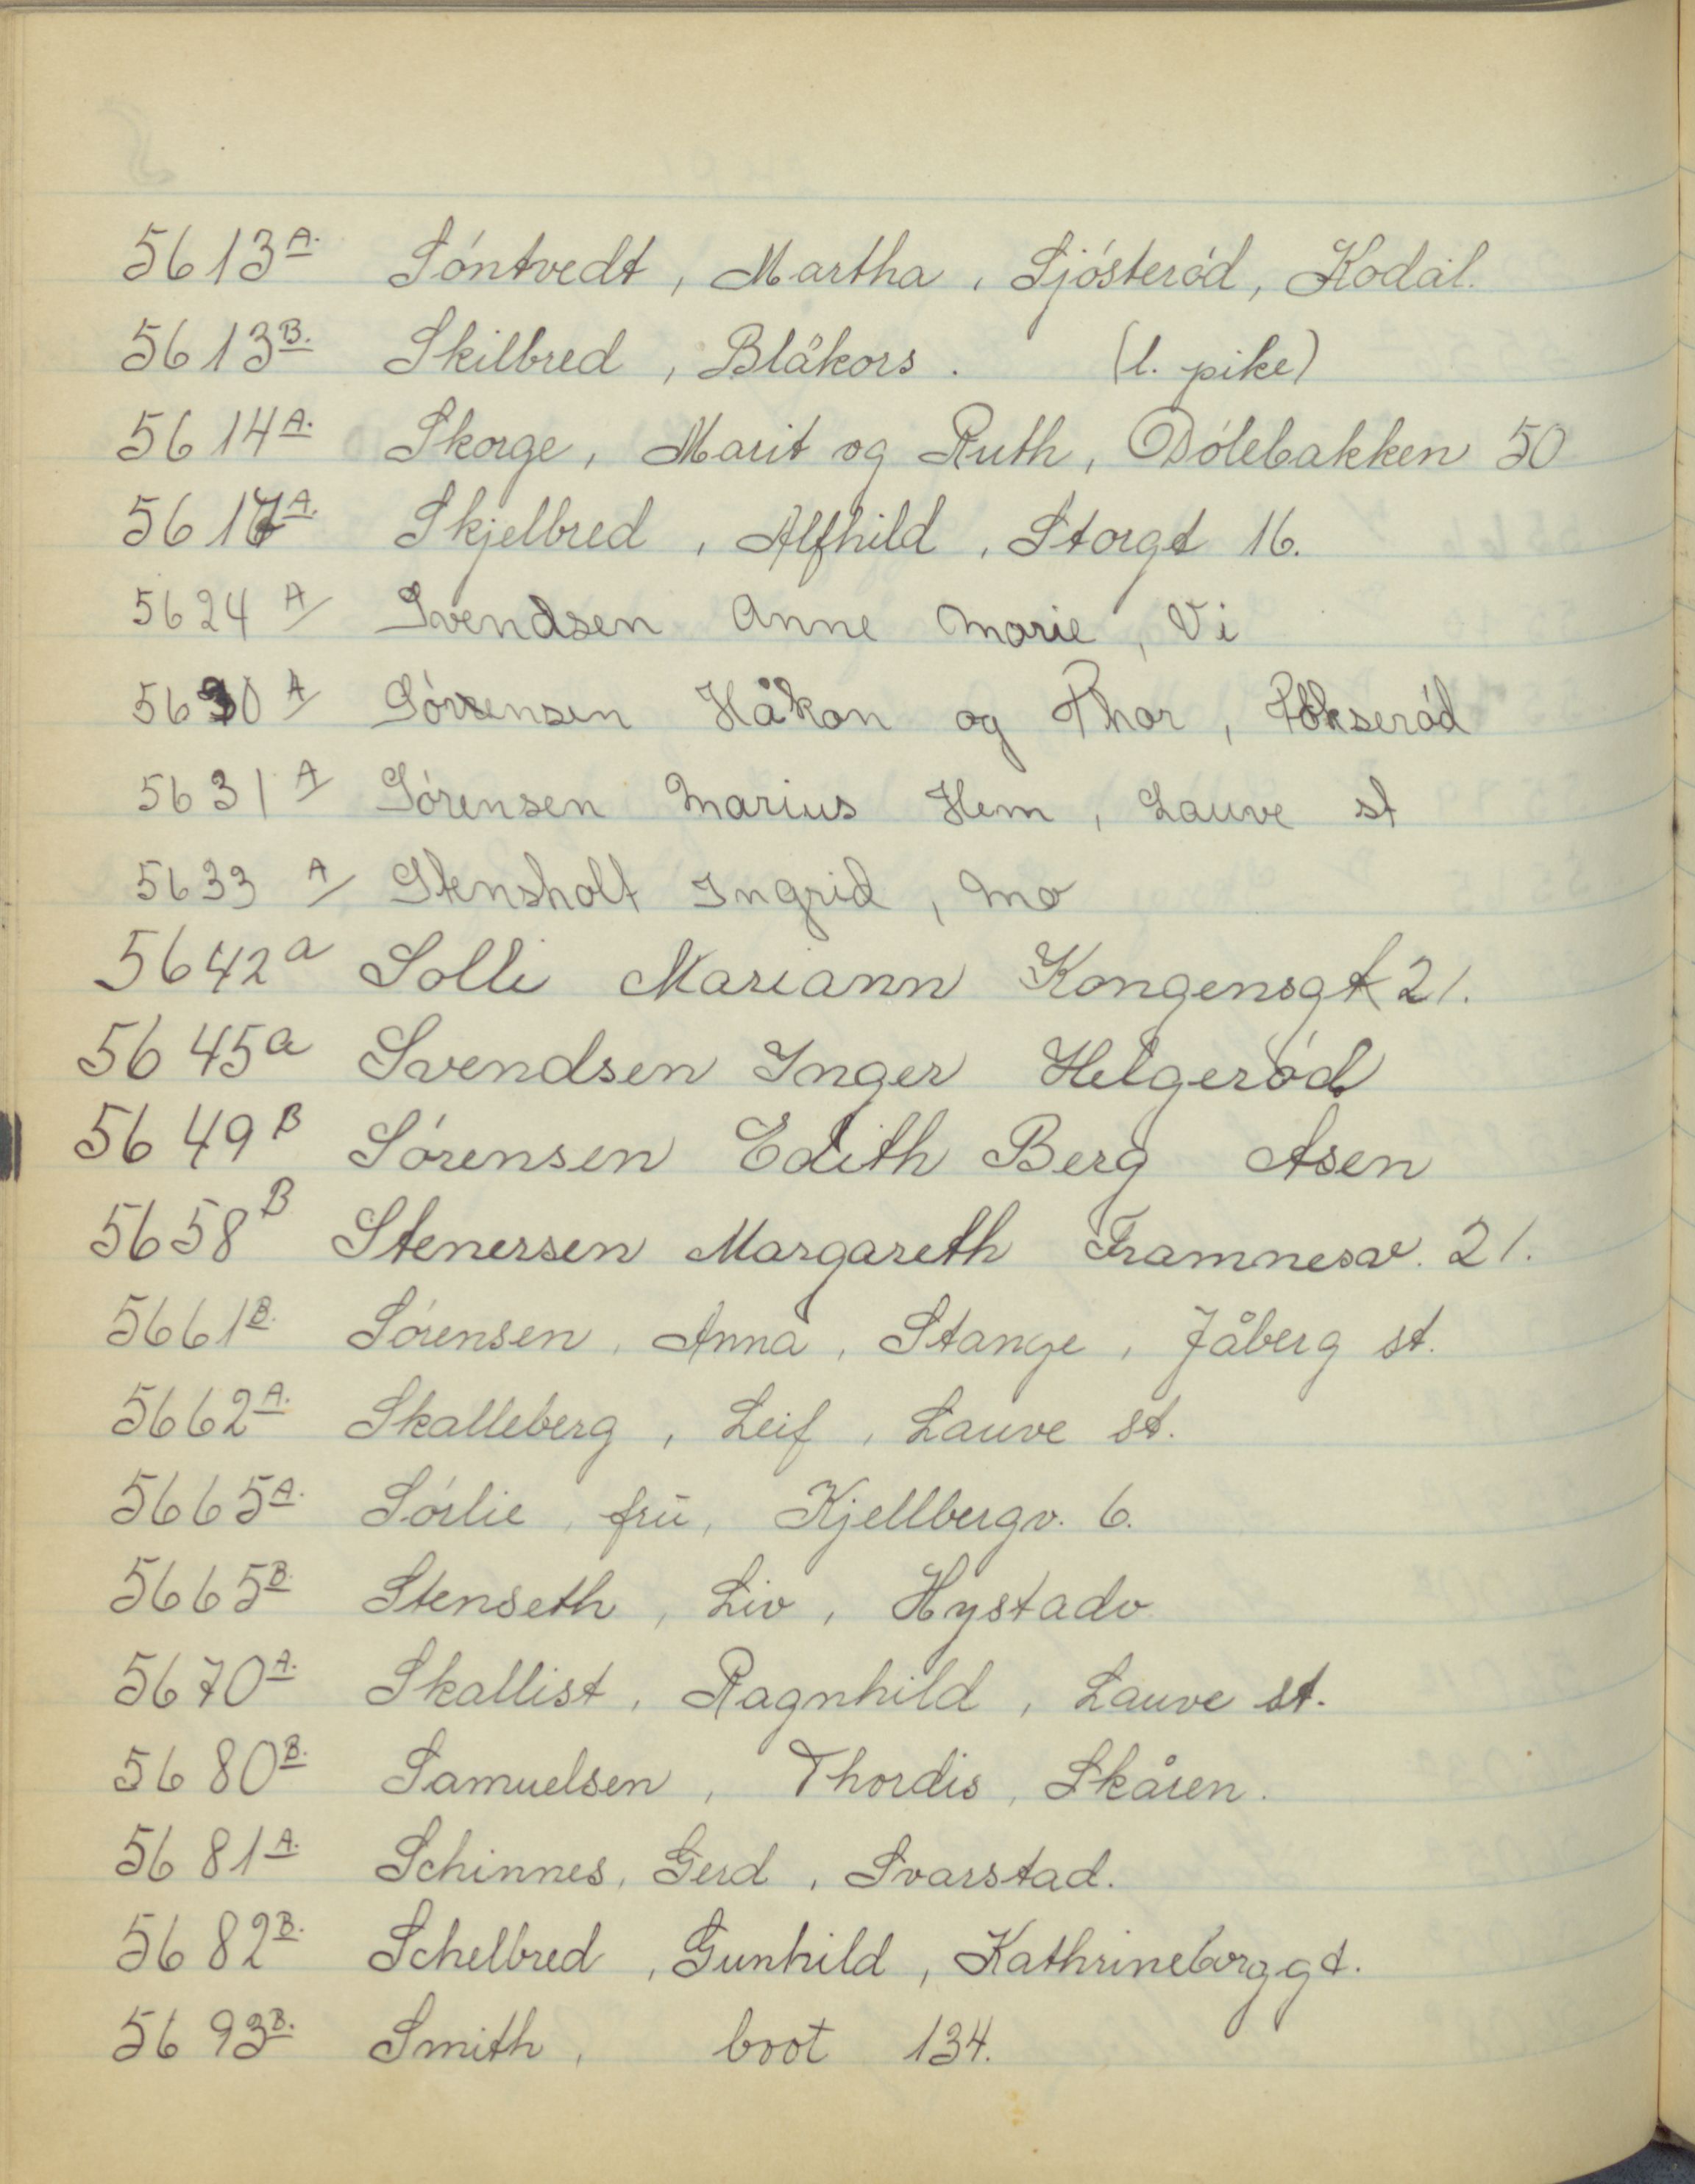 5613A. Sóntvedt, Martha, Sjósteród, Kodal.
5613B. Skilbred, Blåkors. (l. pike)
5614A. Skorge, Marit og Ruth, Dólebakken 50
5617A. Skjelbred, Alfhild, Storgt 16.
5624 A/ Svendsen Anne Marie, Vi
5630 A/ Sórensen Håkon og Thor, Fokseród
5631 A/ Sórensen Marius Hem, Lauve st
5633 A/ Stensholt Ingrid, Mo
5642a Solli Mariann Kongensgt 21.
5645a Svendsen Inger Helgeród
5649B Sórensen Edith Berg Åsen
5658B Stenersen Margareth Framnesv. 21.
5661B. Sórensen, Anna, Stange, Jåberg st.
5662A. Skalleberg, Leif, Lauve st.
5665A. Sórlie, frū, Kjellbergv. 6.
5665B. Stenseth, Liv, Hystadv
5670A. Skallist, Ragnhild, Lauve st.
5680B. Samuelsen, Thordis, Skåren.
5681A. Schinnes, Gerd, Svarstad.
5682B. Schelbred, Gunhild, Kathrineborggt.
5693B. Smith, boot 134.